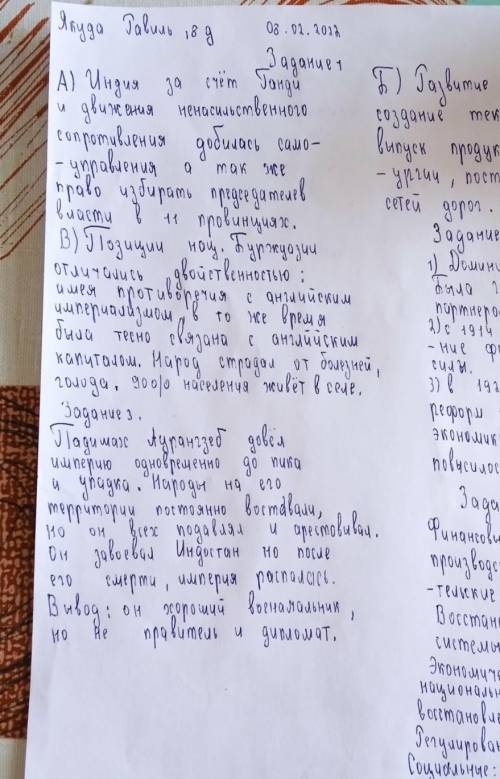 Якуда Равиль, 8д 08.02.2022
Задание 1
А) Индия за счёт Ганди
и движения ненасильственного
сопротивления добилась само-
-управления а так же
право избирать председателев
власти в 11 провинциях.
В) Позиции нац. Буржуазии
отличались двойственностью:
имея противоречия с английским
империализмом, в то же время
была тесно связана с английским
капиталом. Народ страдал от болезней,
голода. 90% населения живёт в селе.
Задание 3.
Падишах Аурангзеб довёл
империю одновременно до пика
и упадка. Народы на его
территории постоянно востàвали,
но он всех подавлял и арестовивал.
Он завоевал Индостан но после
его смерти, империя распалась.
Вывод: он хороший военачальник,
но не правитель и дипломат.
Б) Развитие
создание тек
выпуск продук
-ургии, пост
сетей дорог.
Задание
1) Домини
Была г
партнеро
2) с 1914
-ние фи
силы.
3) в 192
реформ
экономик
повусилос
Зада
Финансови
производс
-тельские
Восстано
системы
Экономиче
националь
восстановле
Регулирован
Социальные: